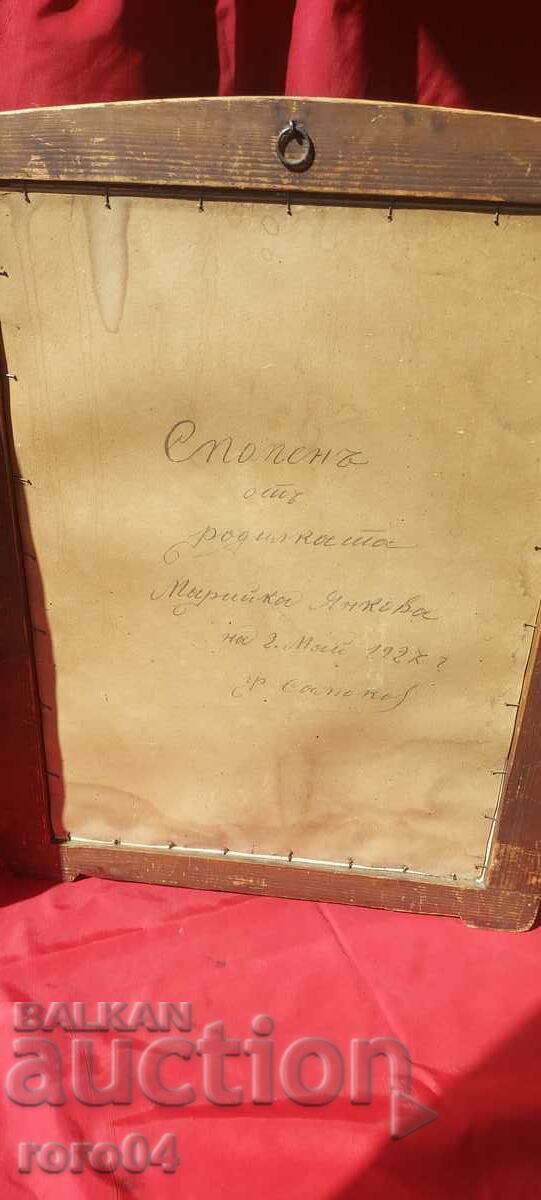 Споменъ
отъ
родилката
Марийка Янкова
на 2. Май 1927 г
гр Самоков
BALKAN
auction
roro04